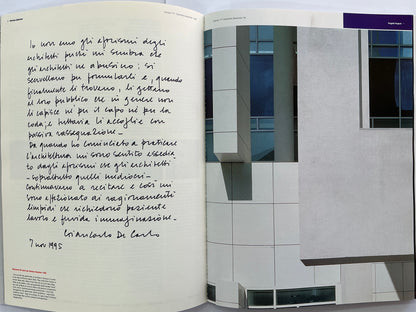 Io non amo gli aforismi degli
architetti perché mi sembra che
gli architetti ne abusino: si
scervellano per formularli e, quando
finalmente li trovano, li gettano
al loro pubblico che in genere non
li capisce né per il capo né per la
coda; e tuttavia li accoglie con
passiva rassegnazione_
Da quando ho cominciato a praticare
l'architettura mi sono sentito
dagli aforismi che gli architetti
_soprattutto quelli mediocri_
continuavano a recitare e così mi
sono affezionato ai ragionamenti
limpidi che richiedono paziente
lavoro e fervida immaginazione_
Giancarlo De Carlo
7 nov 1995